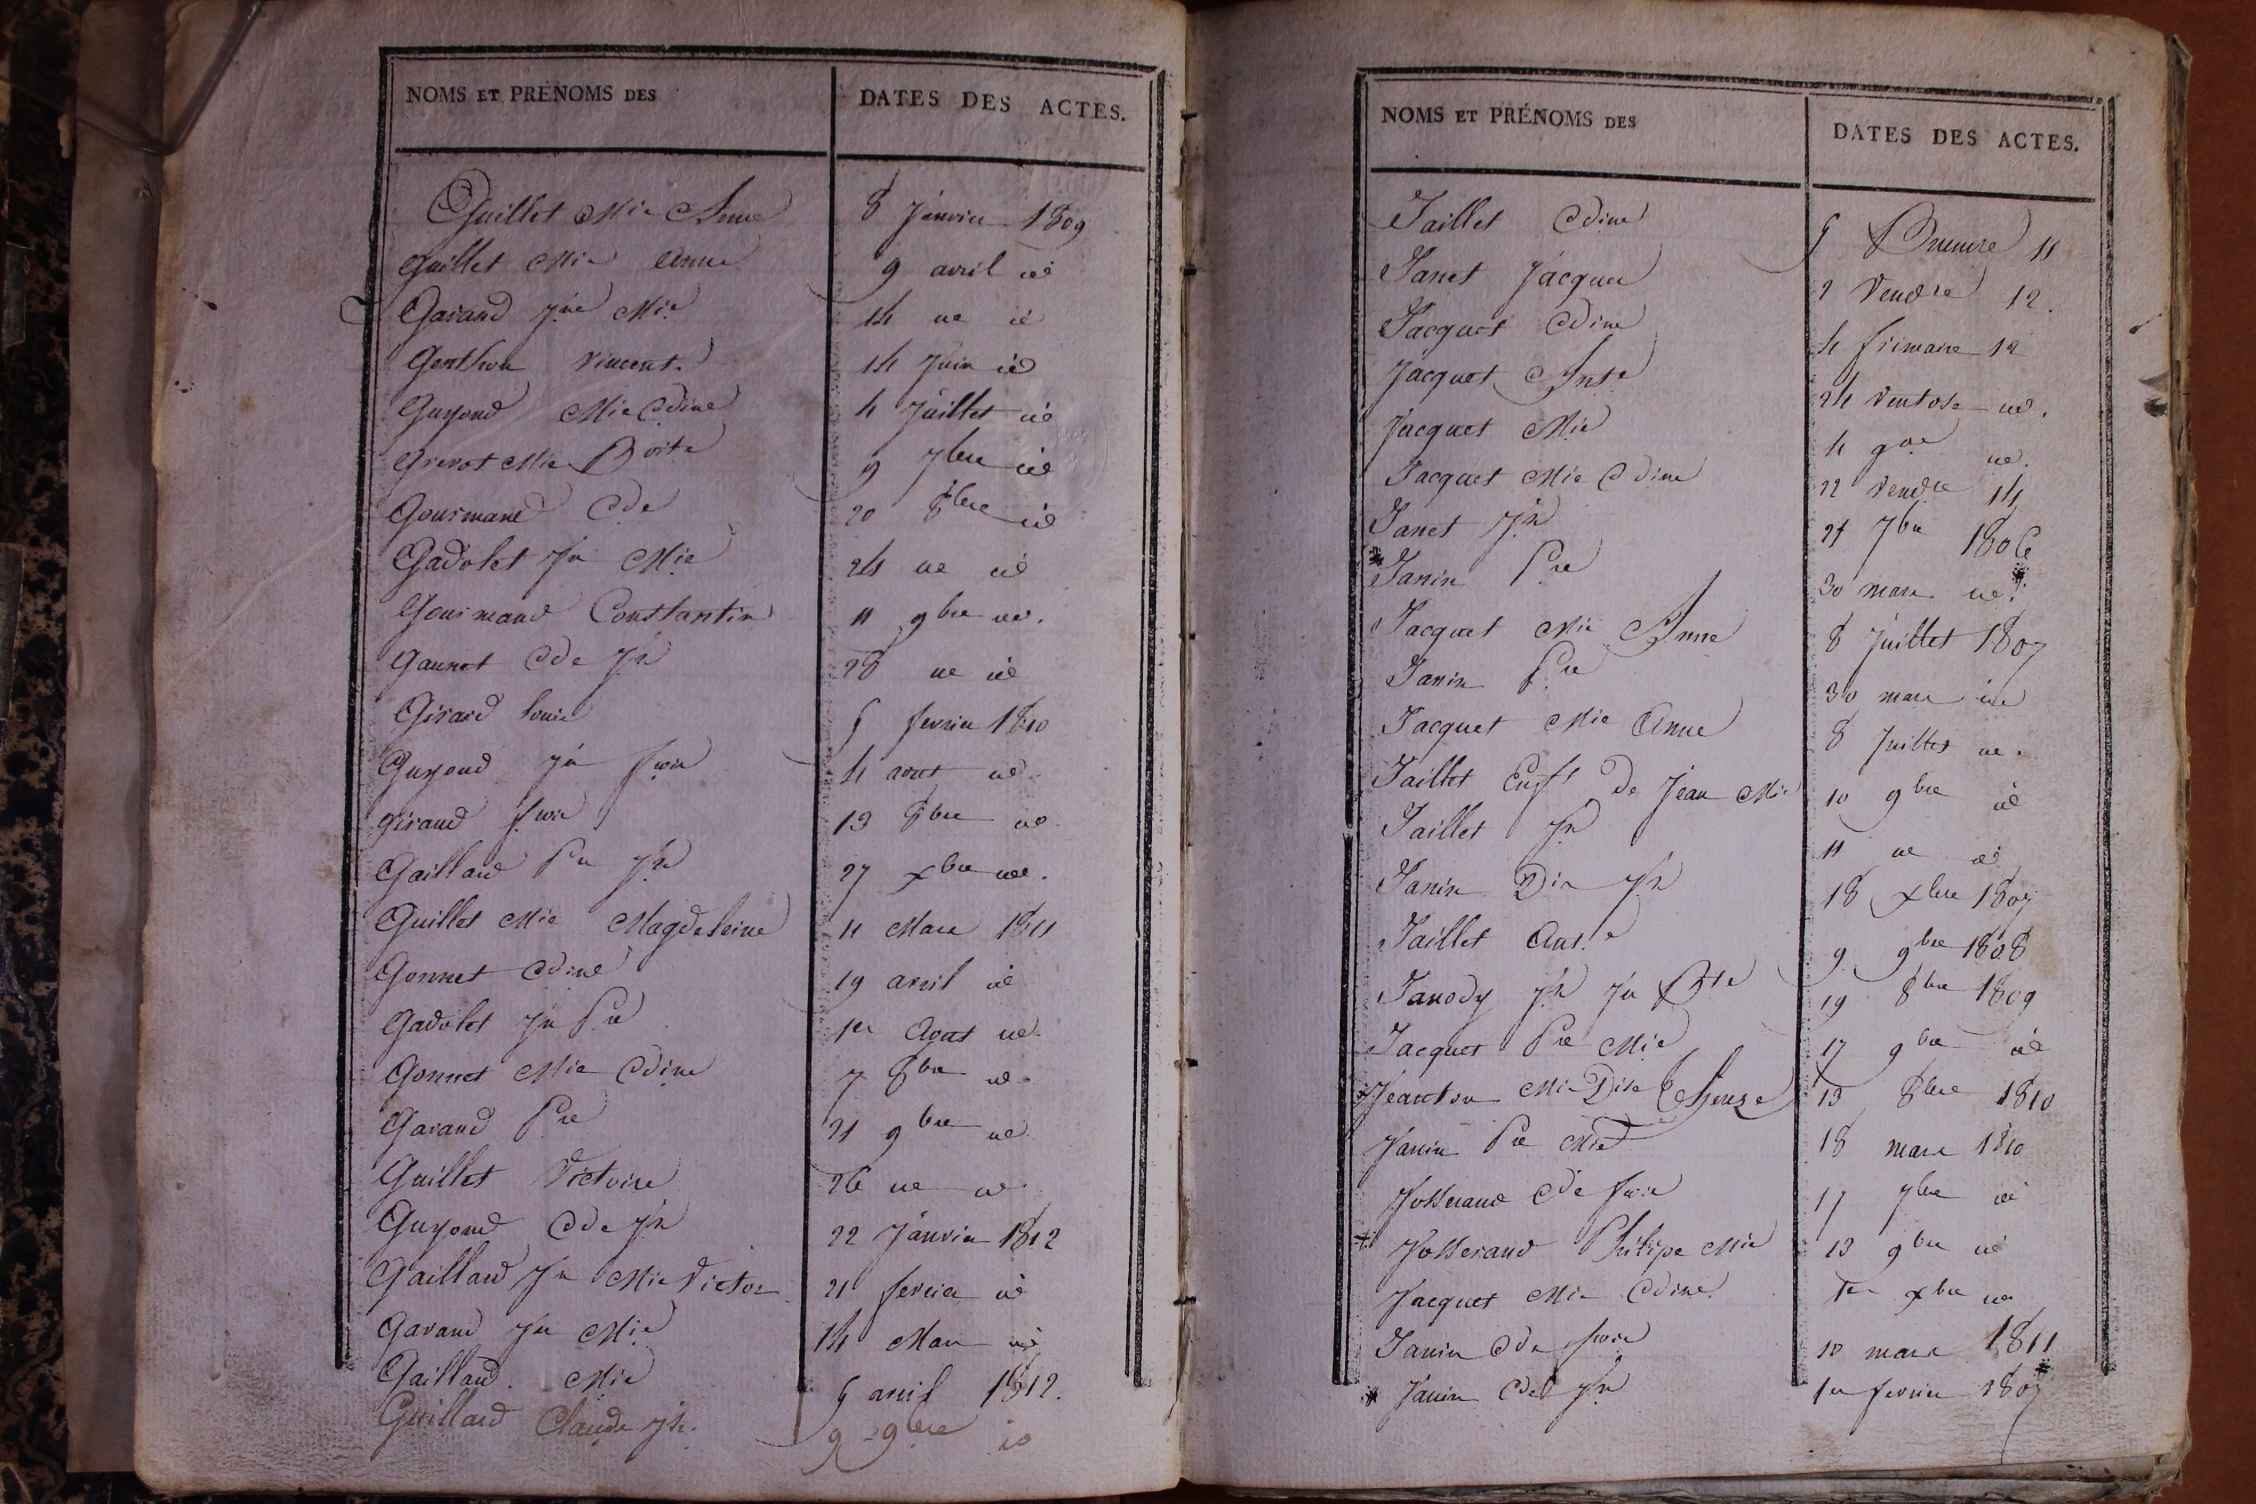 NOMS ET PRÉNOMS DES DATES DES ACTES.
Guillet Mie Anne 8 Janvier 1809
Guillet Mie Anne 9 avril id
Garand Jne Mie 14 id id
Genthon Vincent 14 Juin id
Guyond Mie Cdine 4 Juillet id
Grevot Mie 9 7bre id
Gourmand Cde 20 8bre id
Gadolet Jn Mie 24 id id
Gourmand Constantin 11 9bre id.
Gaunet Cde Jh 28 id id
Girard Louis 5 fevrier 1810
Guyond Jn fcois 4 aout id
Giraud fcois 13 8bre id
Gaillard Pre Jh 27 xbre id.
Guillet Mie Magdeleine 11 Mars 1811
Gonnet Cdine 19 avril id
Gadolet Jn Pre 1er Aout id
Gonnet Mie Cdine 7 8bre id
Garand Pre 21 9bre id
Guillet Victoire 26 id id
Guyond Cde Jh 22 Janvier 1812
Gaillard Jn Mie Victor 21 fevrier id
Garand Jn Mie 14 Mars id
Gaillard Mie 5 avril 1812.
Guillard Claude Jh. 9 9bre id
NOMS ET PRÉNOMS DES DATES DES ACTES.
Jaillet Cdine 5 Brumre 11
Janet Jacques 2 Vendre 12.
Jacquet Cdine 4 frimaire 12
Jacquet Ante 24 Ventose id.
Jacquet Mie 4 id.
Jacquet Mie Cdine 22 Vendre 14
Janet Jh 21 7bre 1806
* Janin Pre 30 mars id. *
Jacquet Mie Anne 8 Juillet 1807
Janin Pre 30 mars id
Jacquet Mie Anne 8 Juillet id.
Jaillet Enft de Jean Mie 10 9bre id
Jaillet Jh 11 id id
Janin Jh 18 xbre 1807
Jaillet Ant.e 9 9bre 1808
Janody Jh Jn Bte 19 8bre 1809
Jacquet Pre Mie 17 9bre id
Jeanton Mie Dise Therese 13 8bre 1810
Janin Pre Mie 18 mars 1810
Josserand Cde fcois 17 7bre id
+ Josserand Philipe Mie 13 9bre id
Jacquet Mie Cdine 1er xbre id
Janin Cde fcois 10 mars 1811
* Janin Cde Jh 1er fevrier 1807 *